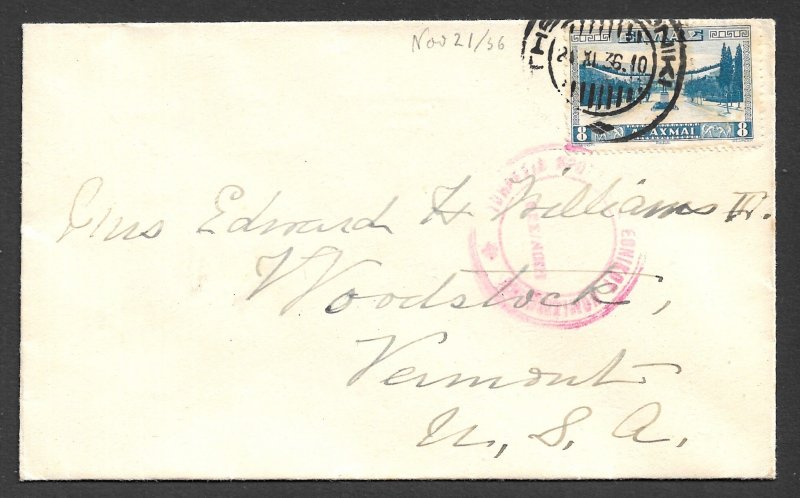 Nov 21/36
ΕΛΛΑΣ
21 XI 36.10
8 ΔΡΑΧΜΑΙ 8
Mrs Edward H Williams IV.
Woodstock,
Vermont
U, S, A.